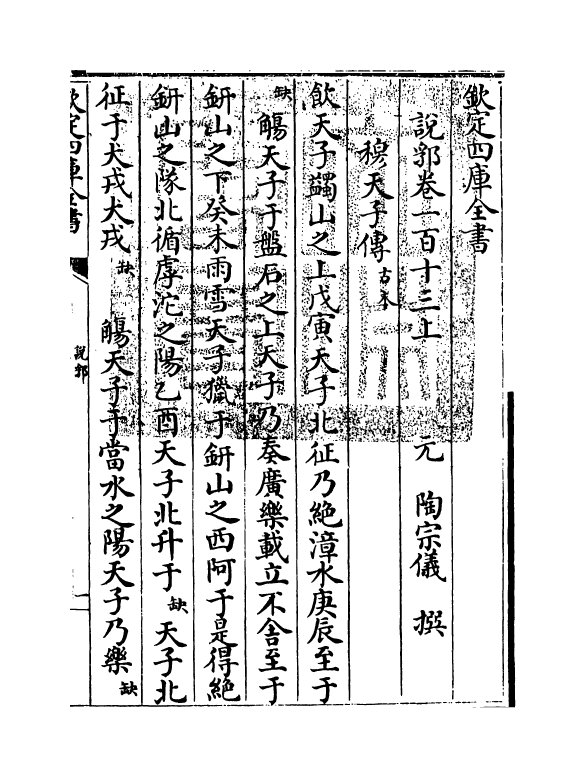 欽定四庫全書
說郛卷一百十三上　元　陶宗儀　撰
穆天子傳古本
飲天子蠲山之上戊寅天子北征乃絶漳水庚辰至于
缺觴天子于盤石之上天子乃奏廣樂載立不舍至于
鈃山之下癸未雨雪天子獵于鈃山之西阿于是得絶
鈃山之隊北循虖沱之陽乙酉天子北升于缺天子北
征于犬戎犬戎缺觴天子于當水之陽天子乃樂缺
欽定四庫全書
說郛
一